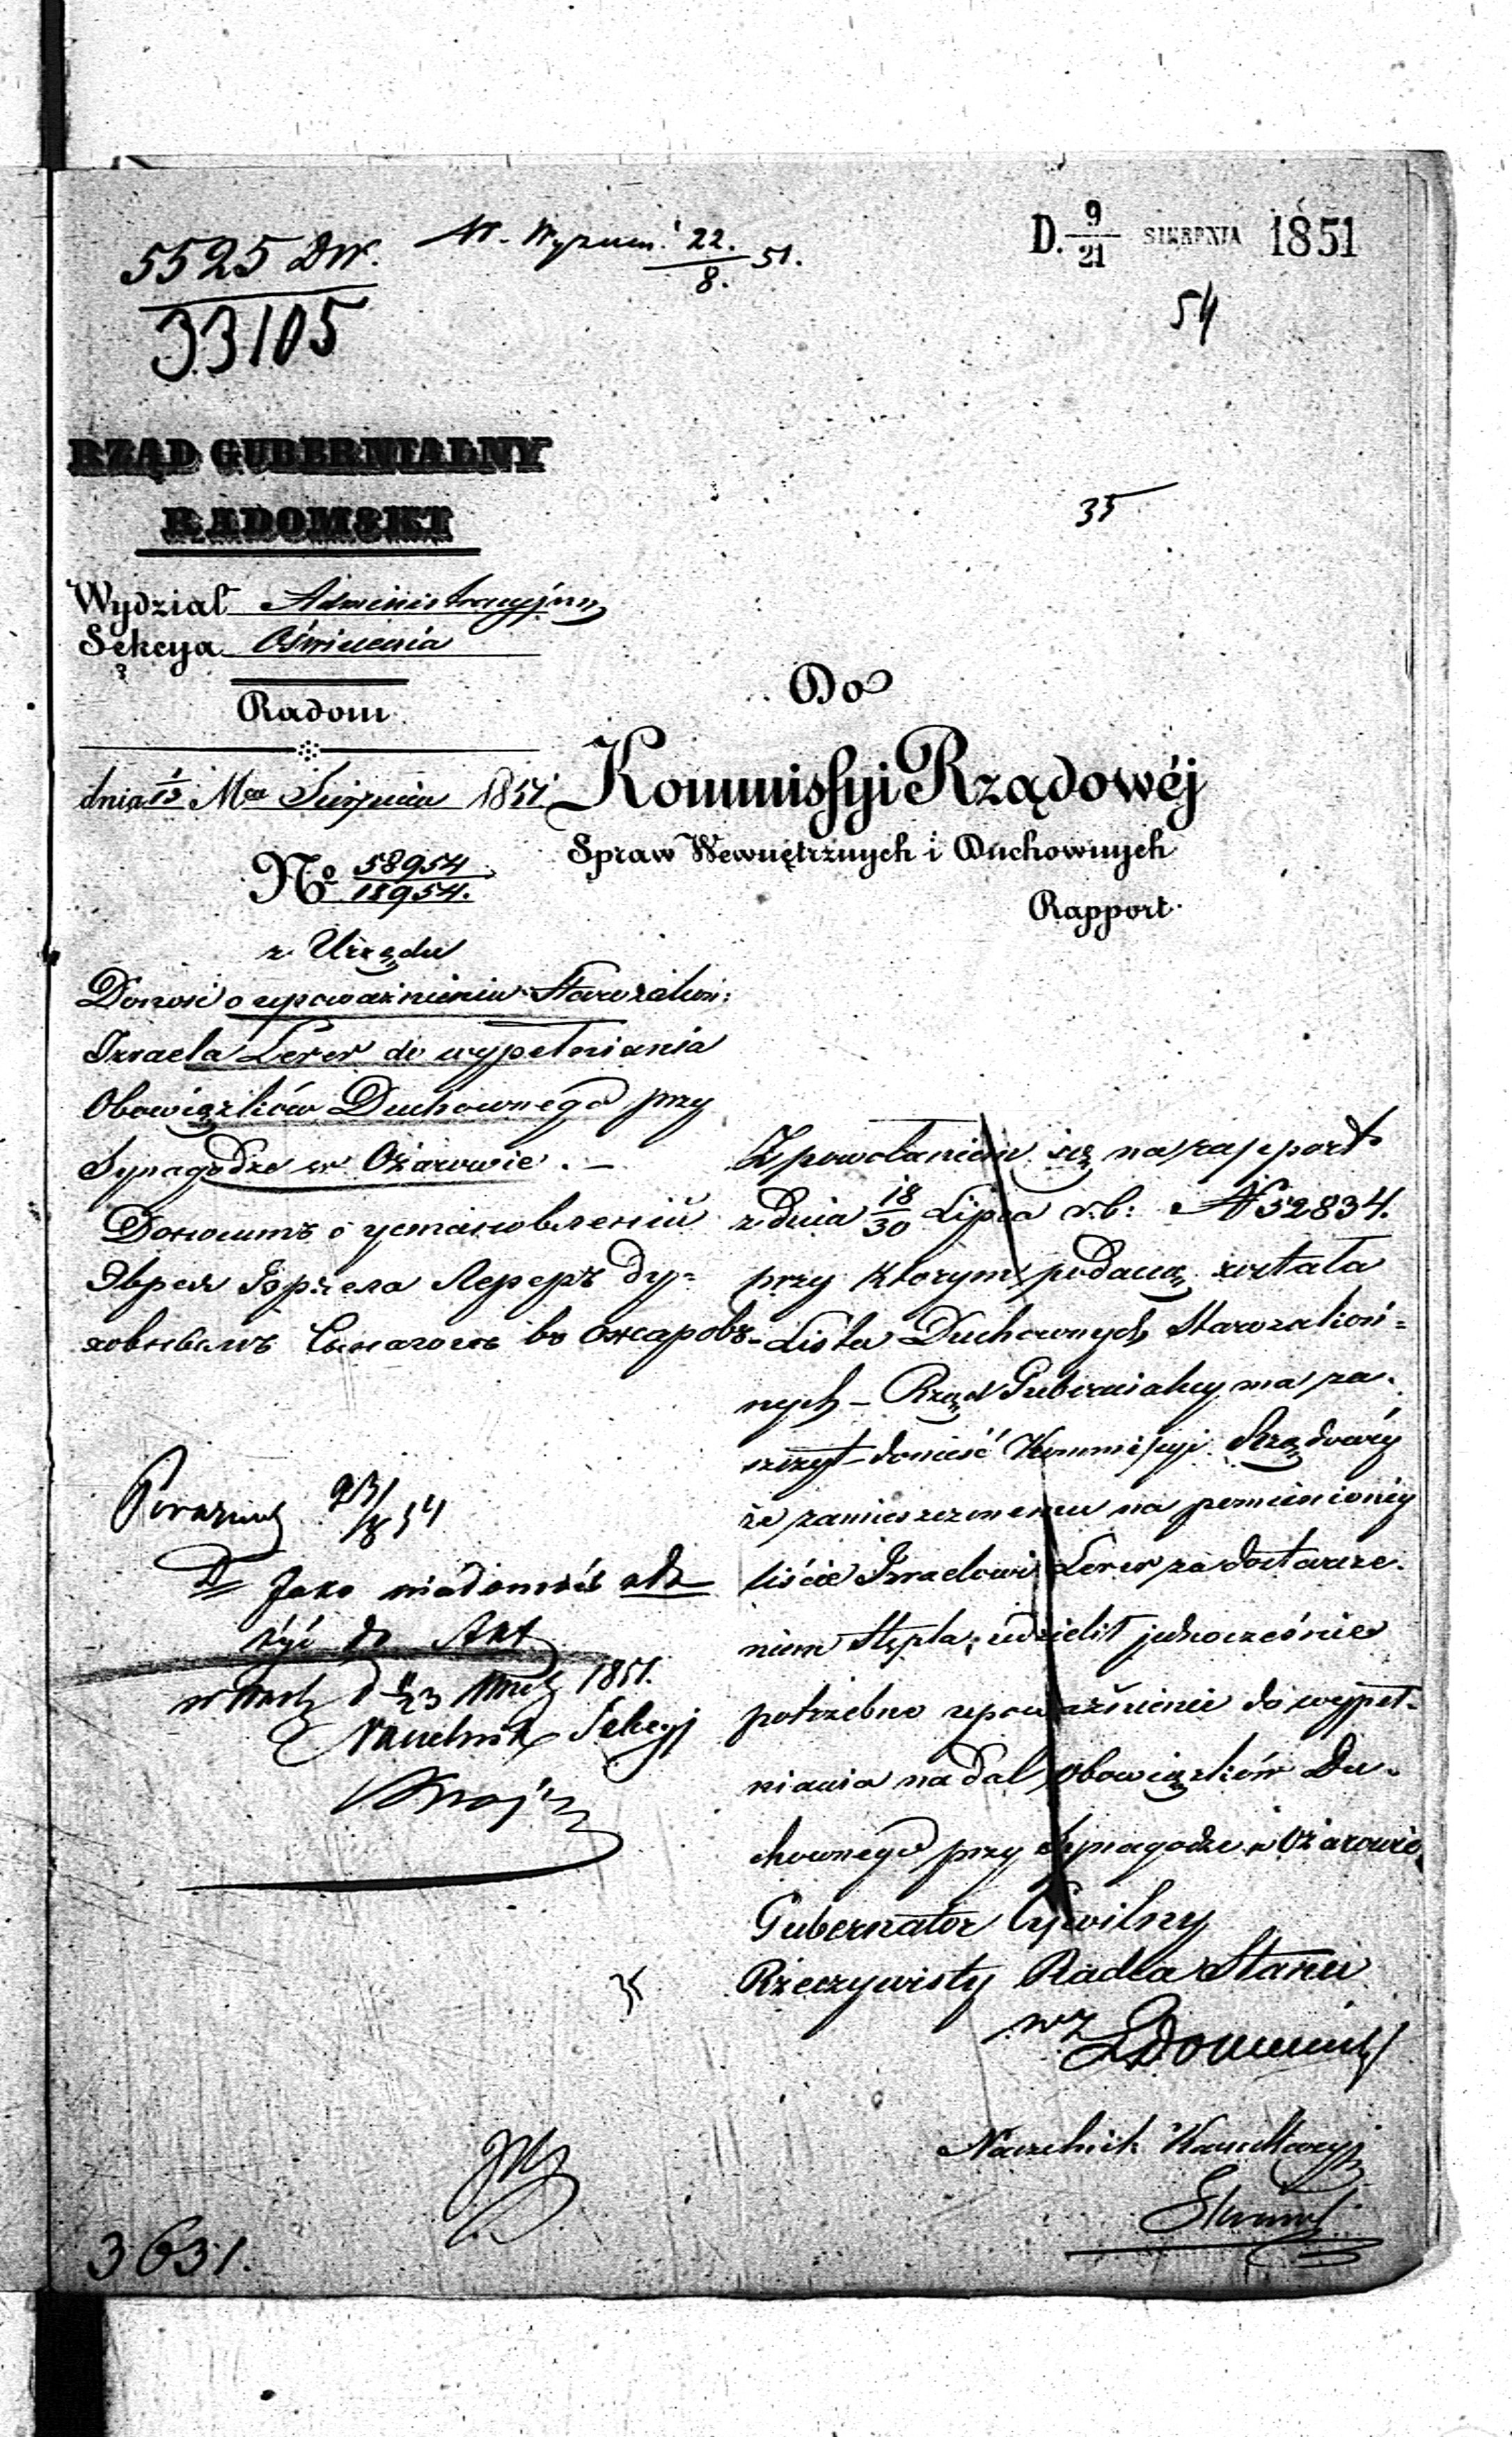 5525 Dw.
33105
22.
8. 51.
D. 9/21 SIERPNIA 1851
54
35
RZĄD GUBERNIALNY
RADOMSKI
Wydział Administracyjny
Sekcya Oświecenia
Radom
dnia 1/13 Mca Sierpnia 1851
No 58954
18954.
z Urzędu
Donosi o upoważnieniu Starozakon:
Izraela Lerer do wypełniania
Obowiązków Duchownego przy
Synagodze w Ożarowie. –
Доноситъ о установленіи
Еврея Израела Лереръ Ду=
ховнымъ Синагоги въ Ожаровѣ
Do
Kommissyi Rządowéj
Spraw Wewnętrznych i Duchownych
Rapport
Z powołaniem się na rapport
z dnia 18/30 Lipca r. b: N 52834.
przy którym podaną została
Lista Duchownych Starozakon=
nych – Rząd Gubernialny ma za-
szczyt donieść Kommissyi Rządowéj
że zamieszczonemu na pomienionéj
liście Izraelowi Lerer za dostarcze-
niem Stępla, udzielił jednocześnie
potrzebne upoważnienie do wypeł-
niania nadal Obowiązków Du-
chownego przy Synagodze w Ożarowie
Gubernator Cywilny
Rzeczywisty Radca Stanu
wz
Naczelnik Kancellaryi
D Jako wiadomość zło
żyć do Akt
1851.
Naczelnik Sekcyi
3631.